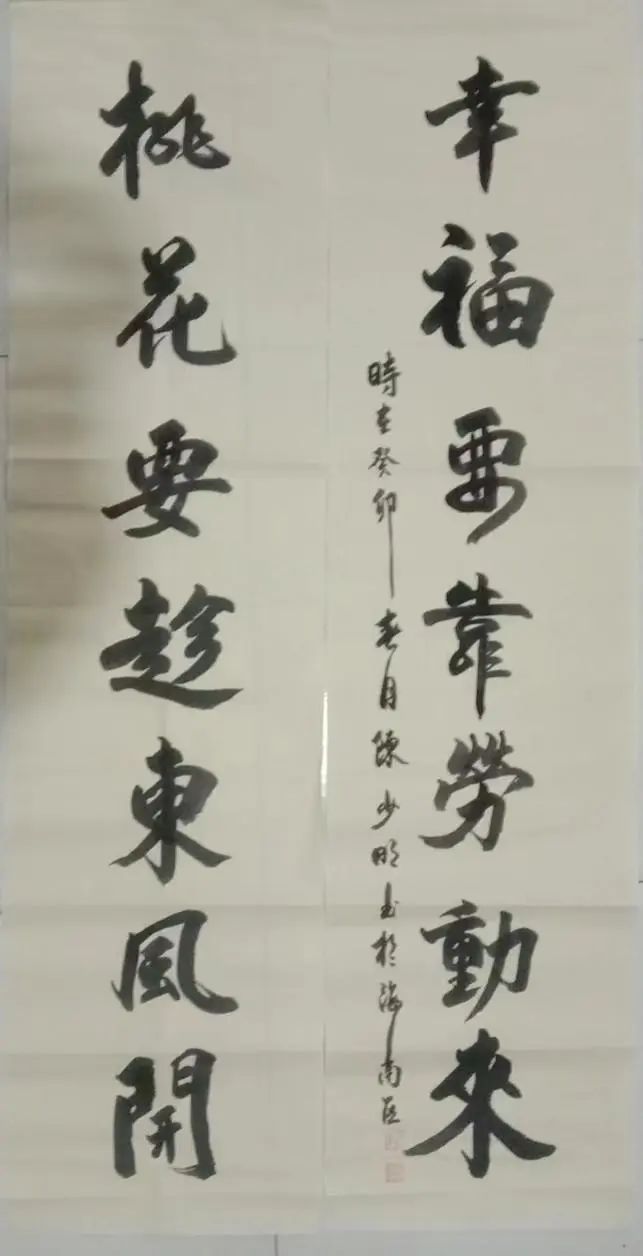 幸福要靠勞動來
時在癸卯春月陳少明書於海南區
桃花要趁東風開